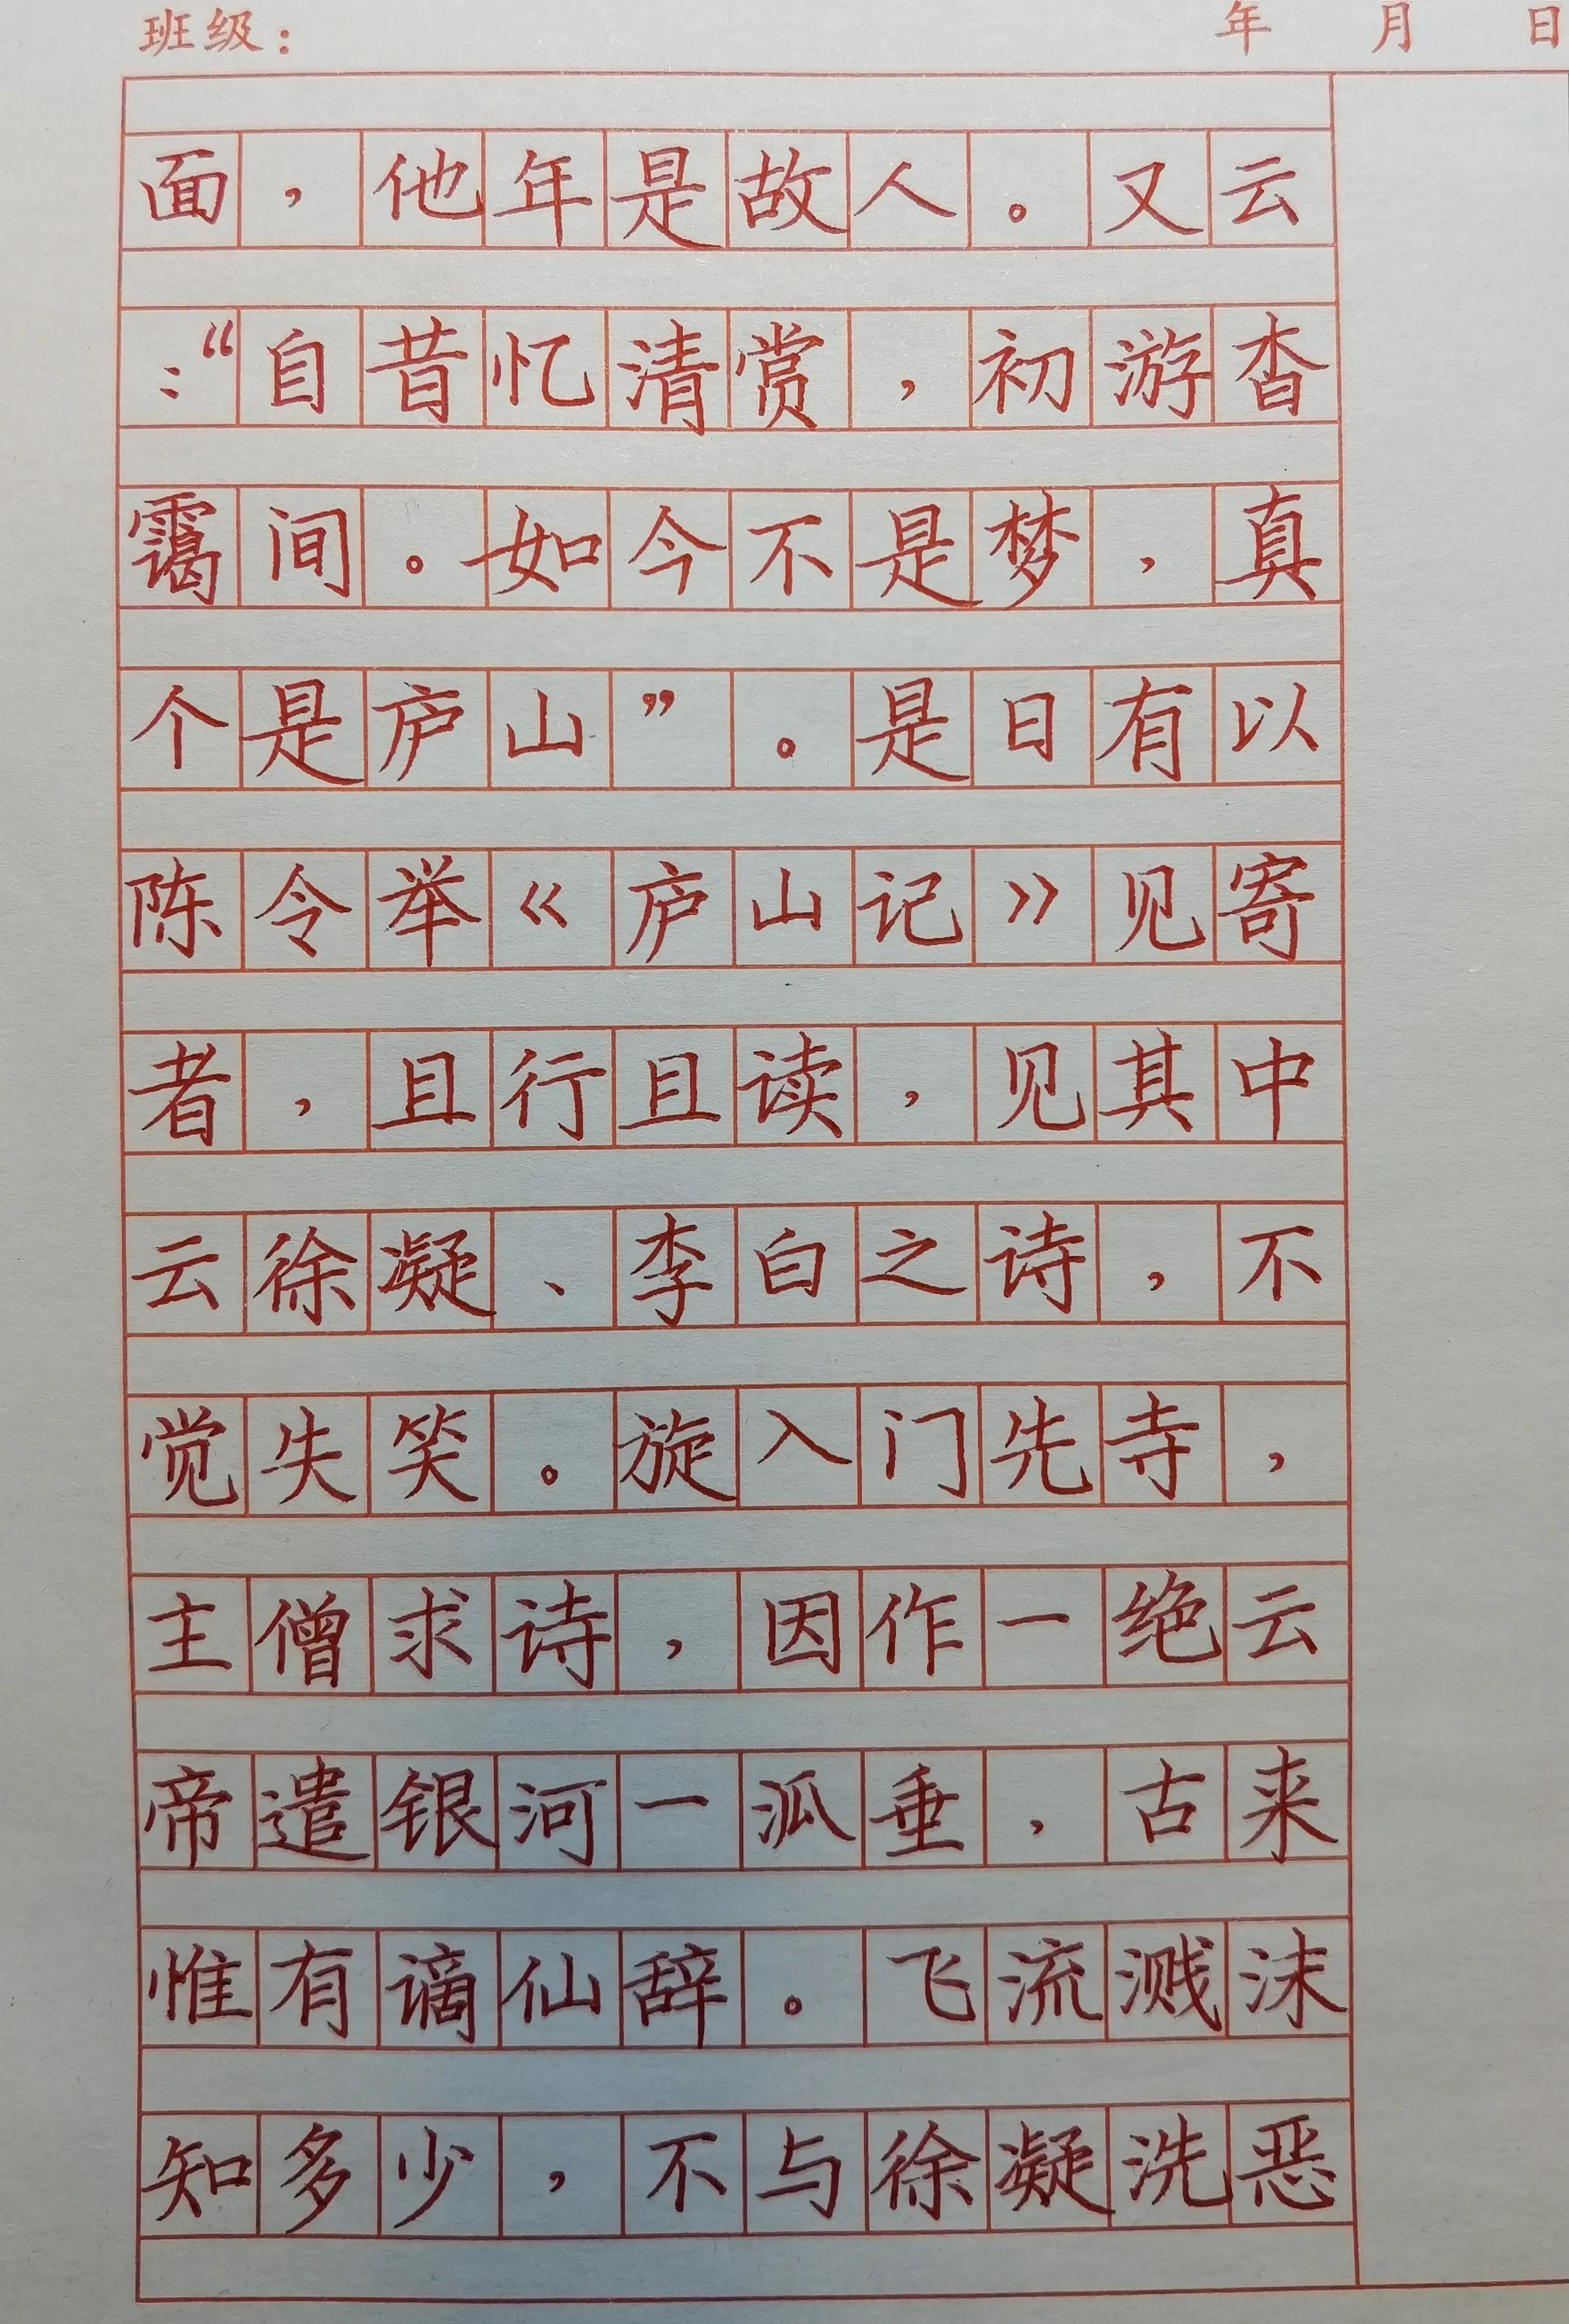 班级： 年 月 日
面，他年是故人。又云
：“自昔忆清赏，初游杳
霭间。如今不是梦，真
个是庐山”。是日有以
陈令举《庐山记》见寄
者，且行且读，见其中
云徐凝、李白之诗，不
觉失笑。旋入门先寺，
主僧求诗，因作一绝云
帝遣银河一派垂，古来
惟有谪仙辞。飞流溅沫
知多少，不与徐凝洗恶